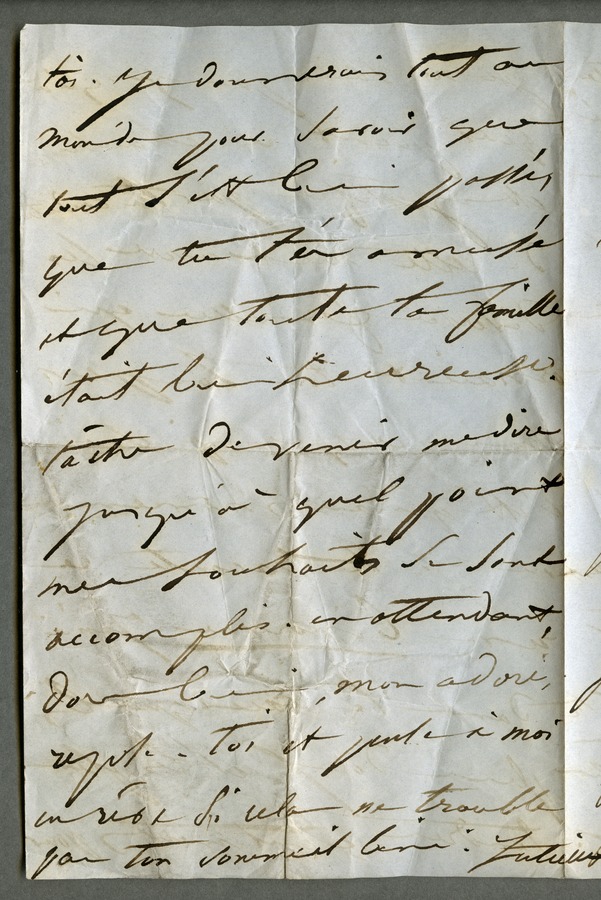 toi. Je donnerais tout au
monde pour savoir que
tout s'est bien passé,
que tu t'es amusé
et que toute ta famille
était bien heureuse.
tâche de venir me dire
jusqu'à quel point
mes souhaits se sont
accomplis. en attendant,
dors bien, mon adoré,
repose-toi et pense à moi
en rêve si cela ne trouble
pas ton sommeil béni. Juliette